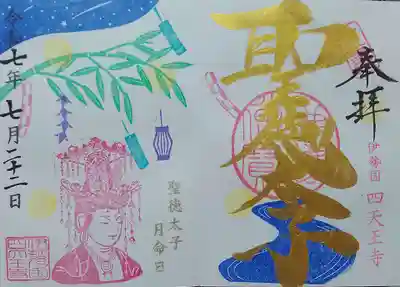 奉拝
伊勢国 四天王寺
聖徳太子
聖徳太子
月命日
令和七年 七月二十二日